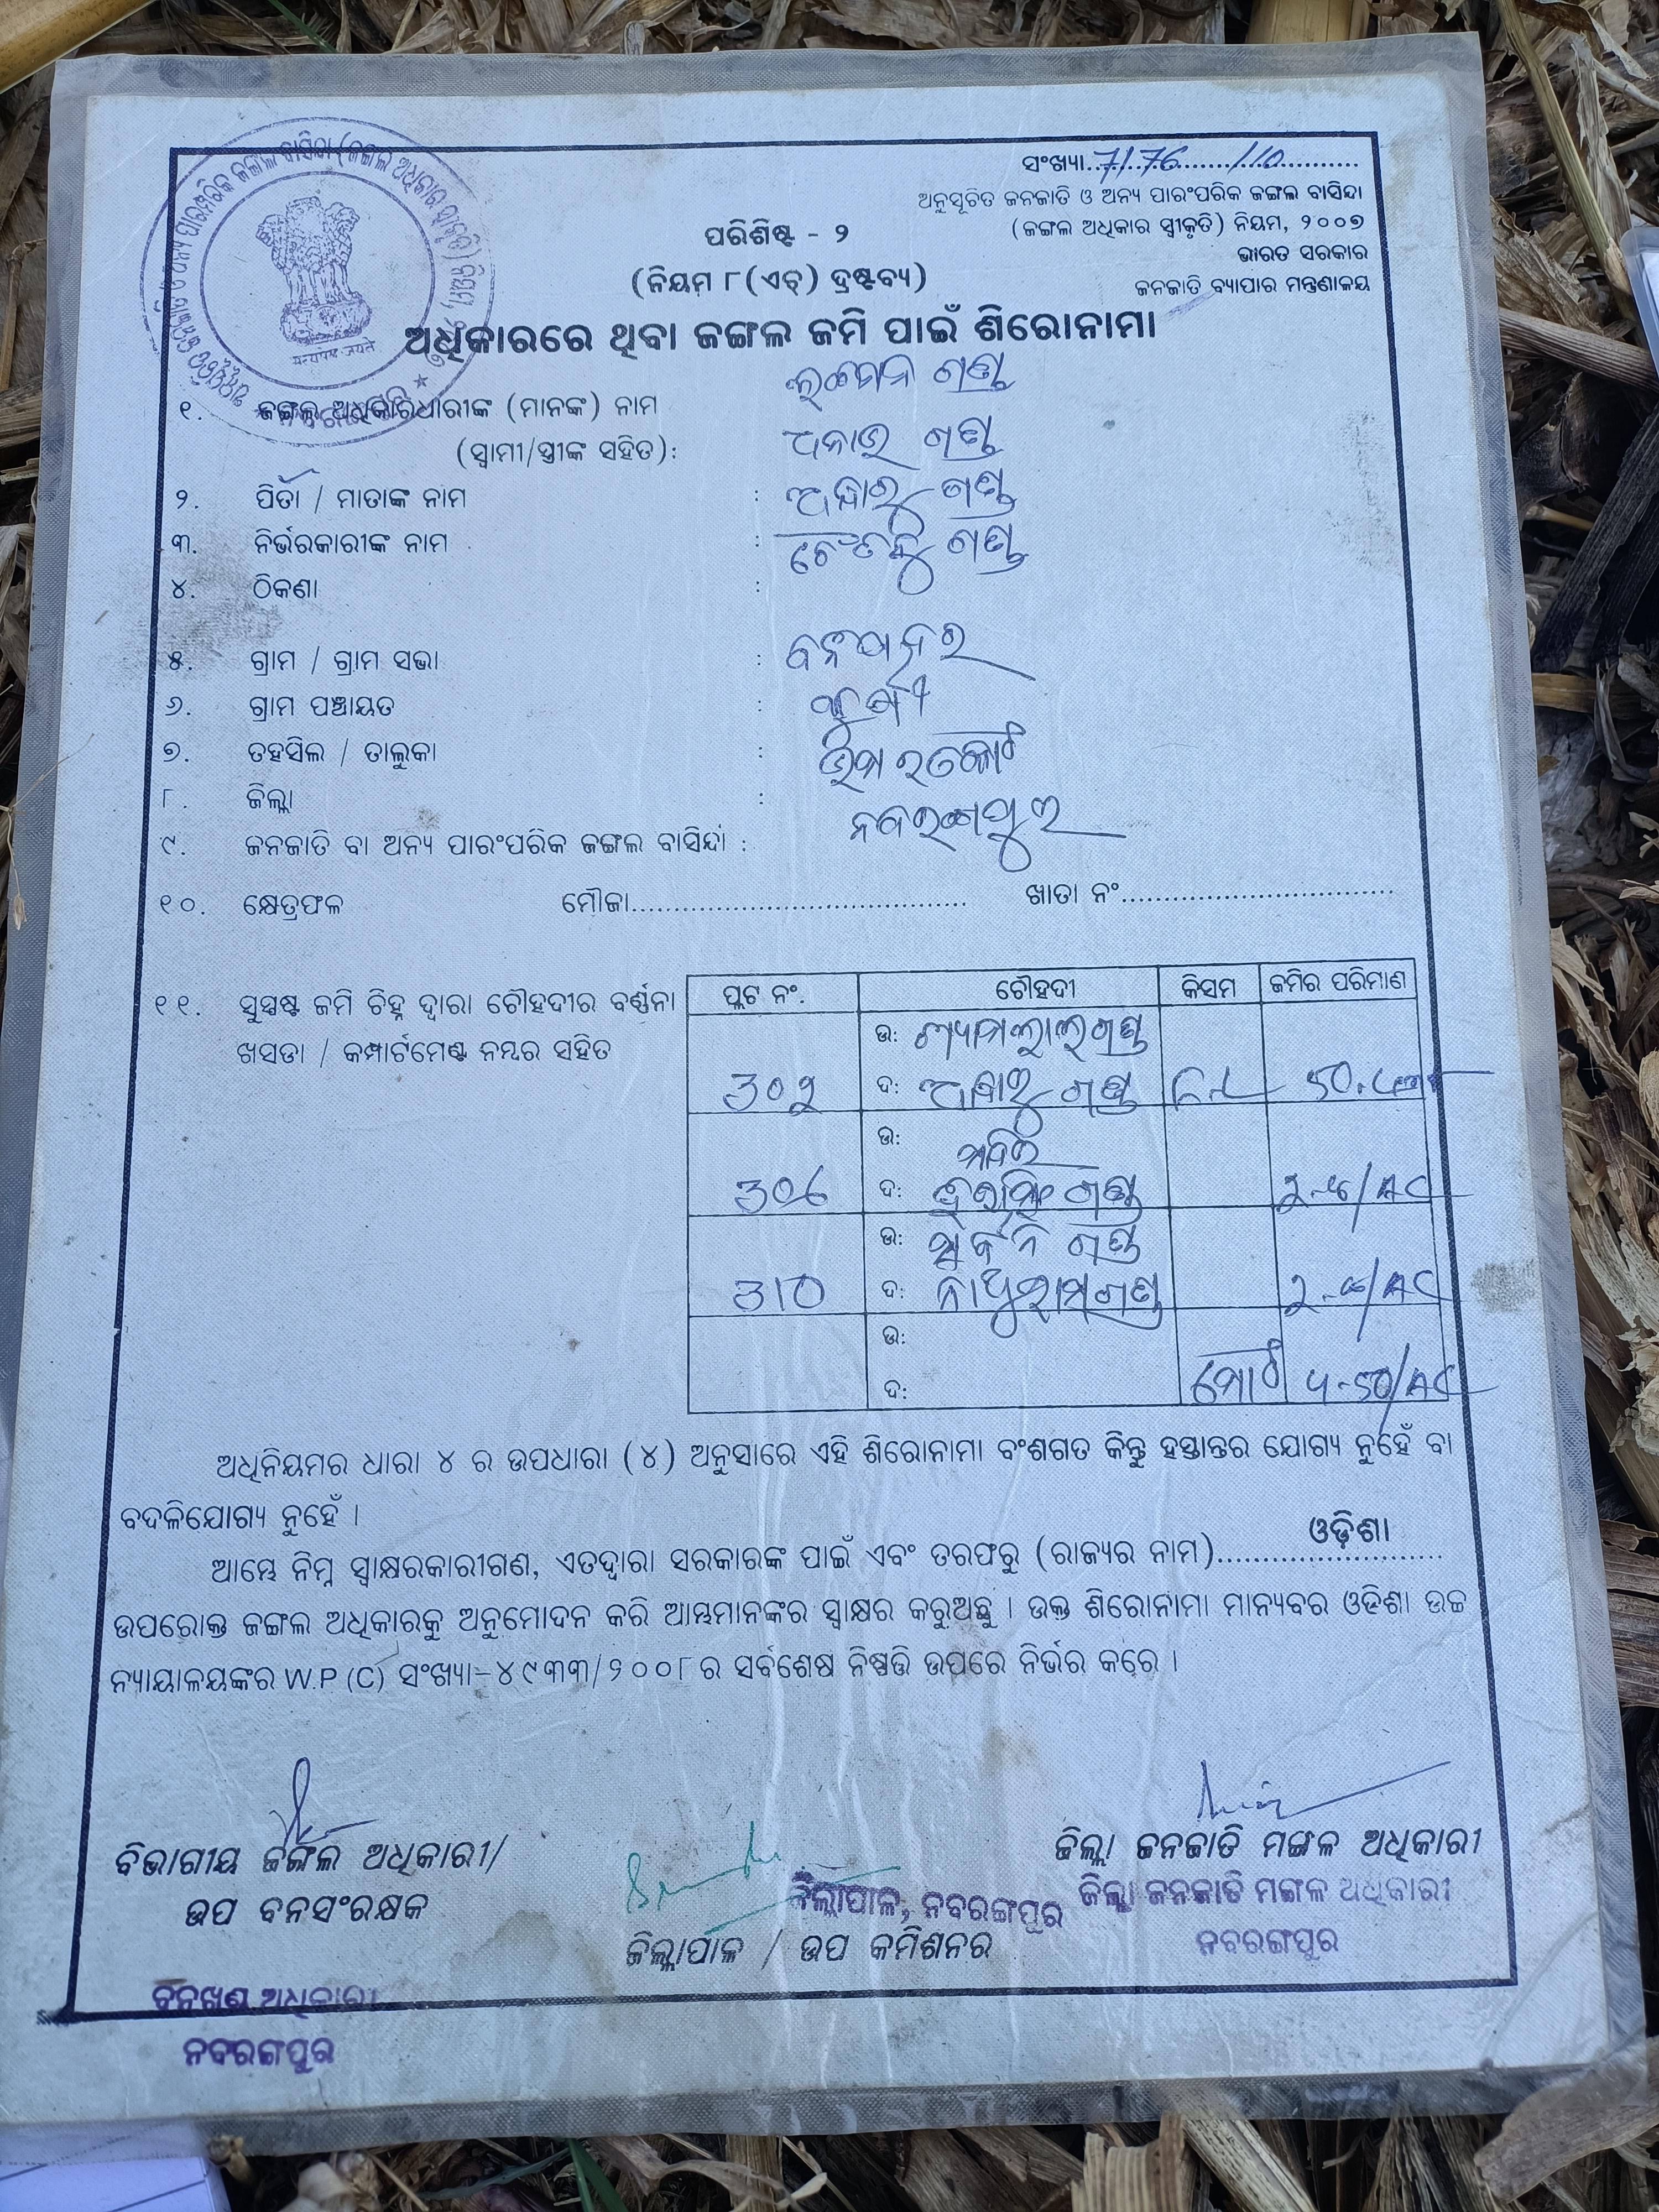 ସଂଖ୍ୟା..7176....../10............
ଅନୁସୂଚିତ ଜନଜାତି ଓ ଅନ୍ୟ ପାରଂପରିକ ଜଙ୍ଗଲ ବାସିନ୍ଦା
(ଜଙ୍ଗଲ ଅଧିକାର ସ୍ୱୀକୃତି) ନିୟମ, ୨୦୦୭
ଭାରତ ସରକାର
ଜନଜାତି ବ୍ୟାପାର ମନ୍ତ୍ରଣାଳୟ
ପରିଶିଷ୍ଟ - ୨
(ନିୟମ ୮(ଏଚ୍) ଦ୍ରଷ୍ଟବ୍ୟ)
ଅଧିକାରରେ ଥିବା ଜଙ୍ଗଲ ଜମି ପାଇଁ ଶିରୋନାମା
୧. ଜଙ୍ଗଲ ଅଧିକାରଧାରୀଙ୍କ (ମାନଙ୍କ) ନାମ ଗଣ୍ଡ
(ସ୍ୱାମୀ/ସ୍ତ୍ରୀଙ୍କ ସହିତ): ଗଣ୍ଡ
୨. ପିତା / ମାତାଙ୍କ ନାମ : ଗଣ୍ଡ
୩. ନିର୍ଭରକାରୀଙ୍କ ନାମ : ଗଣ୍ଡ
୪. ଠିକଣା :
୫. ଗ୍ରାମ / ଗ୍ରାମ ସଭା :
୬. ଗ୍ରାମ ପଞ୍ଚାୟତ :
୭. ତହସିଲ / ତାଲୁକା : ଉମରକୋଟ
୮. ଜିଲ୍ଲା : ନବରଙ୍ଗପୁର
୯. ଜନଜାତି ବା ଅନ୍ୟ ପାରଂପରିକ ଜଙ୍ଗଲ ବାସିନ୍ଦା :
୧୦. କ୍ଷେତ୍ରଫଳ ମୌଜା........................................ ଖାତା ନଂ................................
୧୧. ସୁସ୍ପଷ୍ଟ ଜମି ଚିହ୍ନ ଦ୍ୱାରା ଚୌହଦୀର ବର୍ଣ୍ଣନା
ଖସଡା / କମ୍ପାର୍ଟମେଣ୍ଟ ନମ୍ବର ସହିତ
ପ୍ଲଟ ନଂ. ଚୌହଦୀ କିସମ ଜମିର ପରିମାଣ
ଉ: ଶ୍ୟାମଲାଲ ଗଣ୍ଡ
ଦ: ଗଣ୍ଡ
ଉ:
306 ଦ: ଗଣ୍ଡ
ଉ: ଗଣ୍ଡ
310 ଦ: ନାଥୁରାମ ଗଣ୍ଡ
ଉ:
ଦ: ମୋଟ
ଅଧିନିୟମର ଧାରା ୪ ର ଉପଧାରା (୪) ଅନୁସାରେ ଏହି ଶିରୋନାମା ବଂଶଗତ କିନ୍ତୁ ହସ୍ତାନ୍ତର ଯୋଗ୍ୟ ନୁହେଁ ବା
ବଦଳିଯୋଗ୍ୟ ନୁହେଁ ।
ଓଡ଼ିଶା
ଆମ୍ଭେ ନିମ୍ନ ସ୍ୱାକ୍ଷରକାରୀଗଣ, ଏତଦ୍ୱାରା ସରକାରଙ୍କ ପାଇଁ ଏବଂ ତରଫରୁ (ରାଜ୍ୟର ନାମ)...........................
ଉପରୋକ୍ତ ଜଙ୍ଗଲ ଅଧିକାରକୁ ଅନୁମୋଦନ କରି ଆମ୍ଭମାନଙ୍କର ସ୍ୱାକ୍ଷର କରୁଅଛୁ । ଉକ୍ତ ଶିରୋନାମା ମାନ୍ୟବର ଓଡିଶା ଉଚ୍ଚ
ନ୍ୟାୟାଳୟଙ୍କର W.P (C) ସଂଖ୍ୟା-୪୯୩୩/୨୦୦୮ ର ସର୍ବଶେଷ ନିଷ୍ପତ୍ତି ଉପରେ ନିର୍ଭର କରେ ।
ବିଭାଗୀୟ ଜଙ୍ଗଲ ଅଧିକାରୀ/
ଉପ ବନସଂରକ୍ଷକ
ବନଖଣ୍ଡ ଅଧିକାରୀ
ନବରଙ୍ଗପୁର
ଜିଲ୍ଲାପାଳ, ନବରଙ୍ଗପୁର
ଜିଲ୍ଲାପାଳ / ଉପ କମିଶନର
ଜିଲ୍ଲା ଜନଜାତି ମଙ୍ଗଳ ଅଧିକାରୀ
ଜିଲ୍ଲା ଜନଜାତି ମଙ୍ଗଳ ଅଧିକାରୀ
ନବରଙ୍ଗପୁର